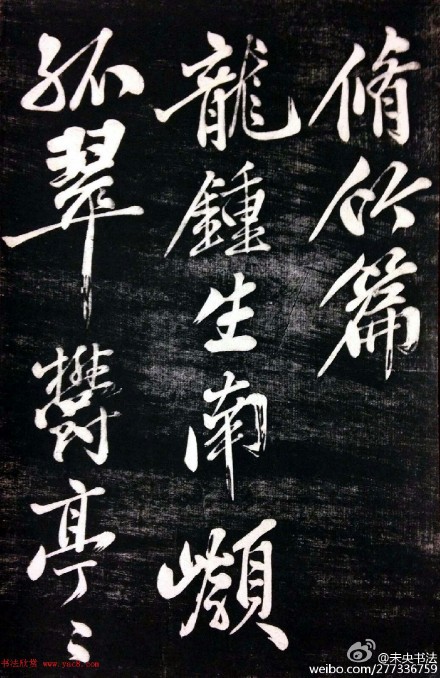 脩竹篇
龍鍾生南
孤翠鬱亭〻
书法欣赏 www.yac8.com
@未央书法
weibo.com/277336759